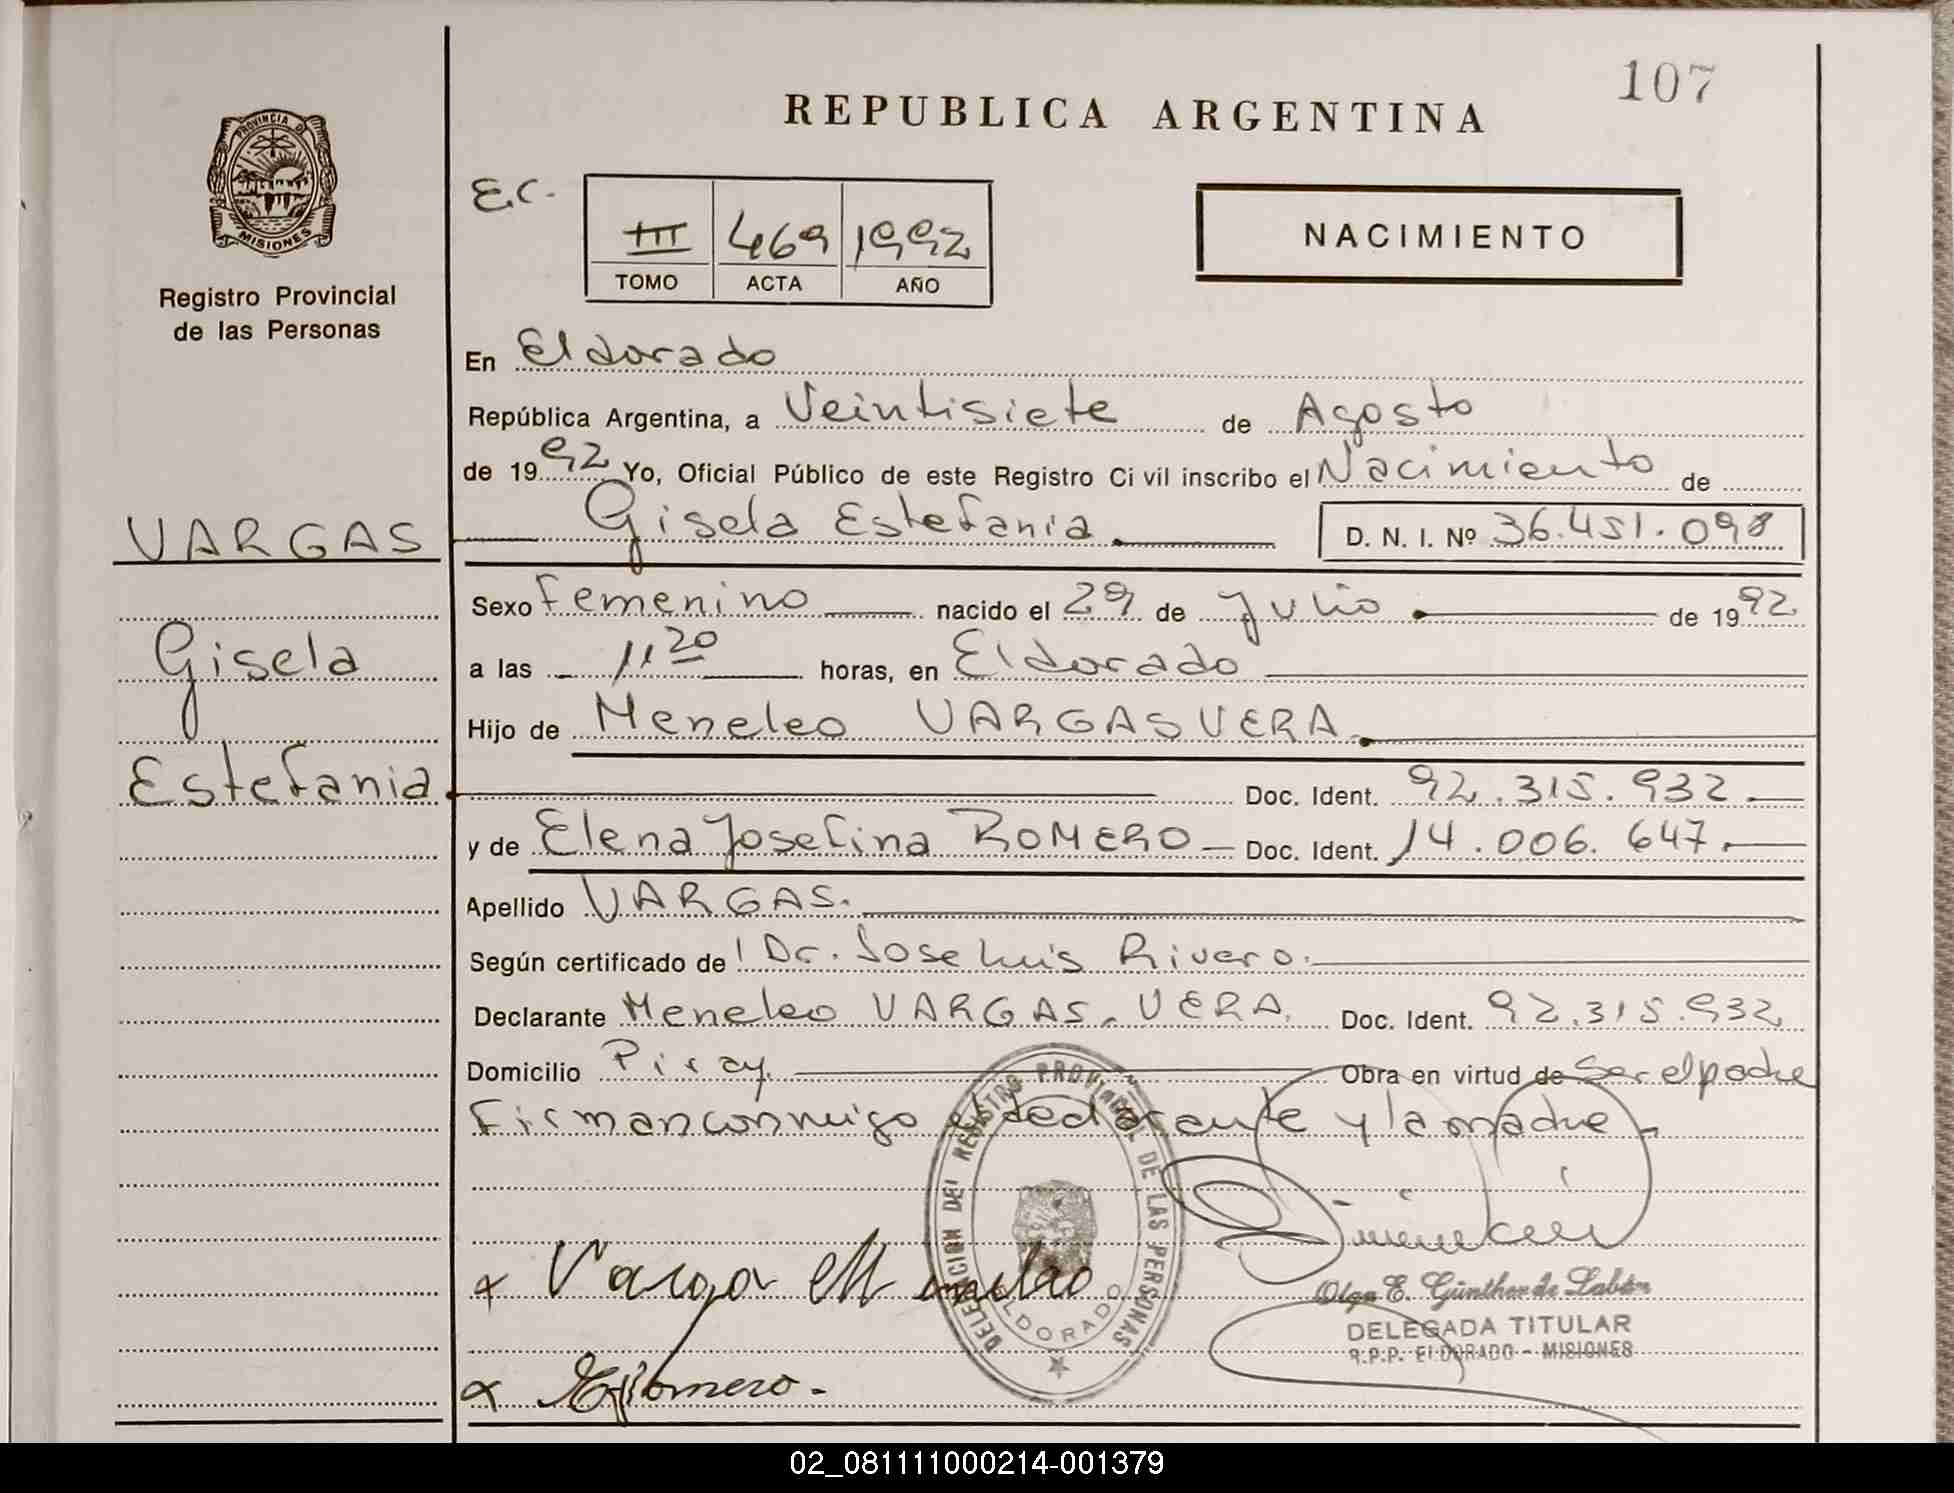 107
REPUBLICA ARGENTINA
PROVINCIA DE
MISIONES
Registro Provincial
de las Personas
E.C.
III 469 1992
TOMO ACTA AÑO
NACIMIENTO
En Eldorado
República Argentina, a Veintisiete de Agosto
de 1992 Yo, Oficial Público de este Registro Civil inscribo el Nacimiento de
VARGAS
Gisela Estefania D. N. I. Nº 36.451.098
Sexo Femenino nacido el 29 de Julio de 1992
Gisela
a las 11 20 horas, en Eldorado
Hijo de Meneleo VARGAS VERA
Estefania
Doc. Ident. 92.315.932.
y de Elena Josefina ROMERO Doc. Ident. 14.006.647.
Apellido VARGAS.
Según certificado del Dr. Jose Luis Rivero.
Declarante Meneleo VARGAS. VERA. Doc. Ident. 92.315.932
Domicilio Piray. Obra en virtud de Ser el padre
Firman conmigo el declarante y la madre
DELEGACION DEL REGISTRO PROVINCIAL DE LAS PERSONAS
ELDORADO
Olga E. Günther de Labán
DELEGADA TITULAR
R.P.P. ELDORADO - MISIONES
x Romero.
02_081111000214-001379